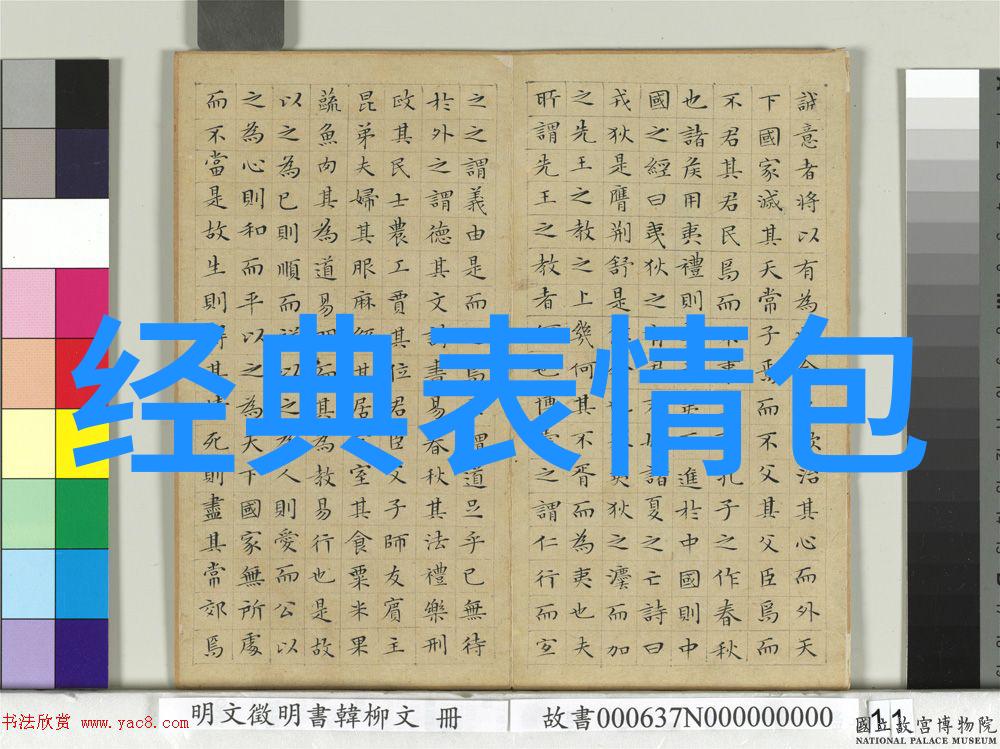 經典表情包
誠意者將以有為欲治其心而外天
下國家滅其天常子焉而不父其父臣焉而
不君其君民焉而孔子之作春秋
也諸侯用夷禮則進於中國則中
國之經曰夷狄之諸夏之亡詩曰
戎狄是膺荊舒是夷狄之灋而加
之先王之教之上幾何其不胥而為夷也夫
所謂先王之教者也博之謂仁行而宜
之之謂義由是而謂道足乎已無待
於外之謂德其文詩書易春秋其法禮樂刑
政其民士農工賈其位君臣父子師友賓主
昆弟夫婦其服麻其居室其食粟米果
蔬魚肉其為道易而其為教易行也是故
以之為已則順而以之人則愛而公以
之為心則和而平以之為天下國家無所處
而不當是故生則其死則盡其常郊焉
书法欣赏 www.yac8.com
明文徵明書韓柳文 冊
故書000637N000000000
11
國立故宮博物院
NATIONAL PALACE MUSEUM